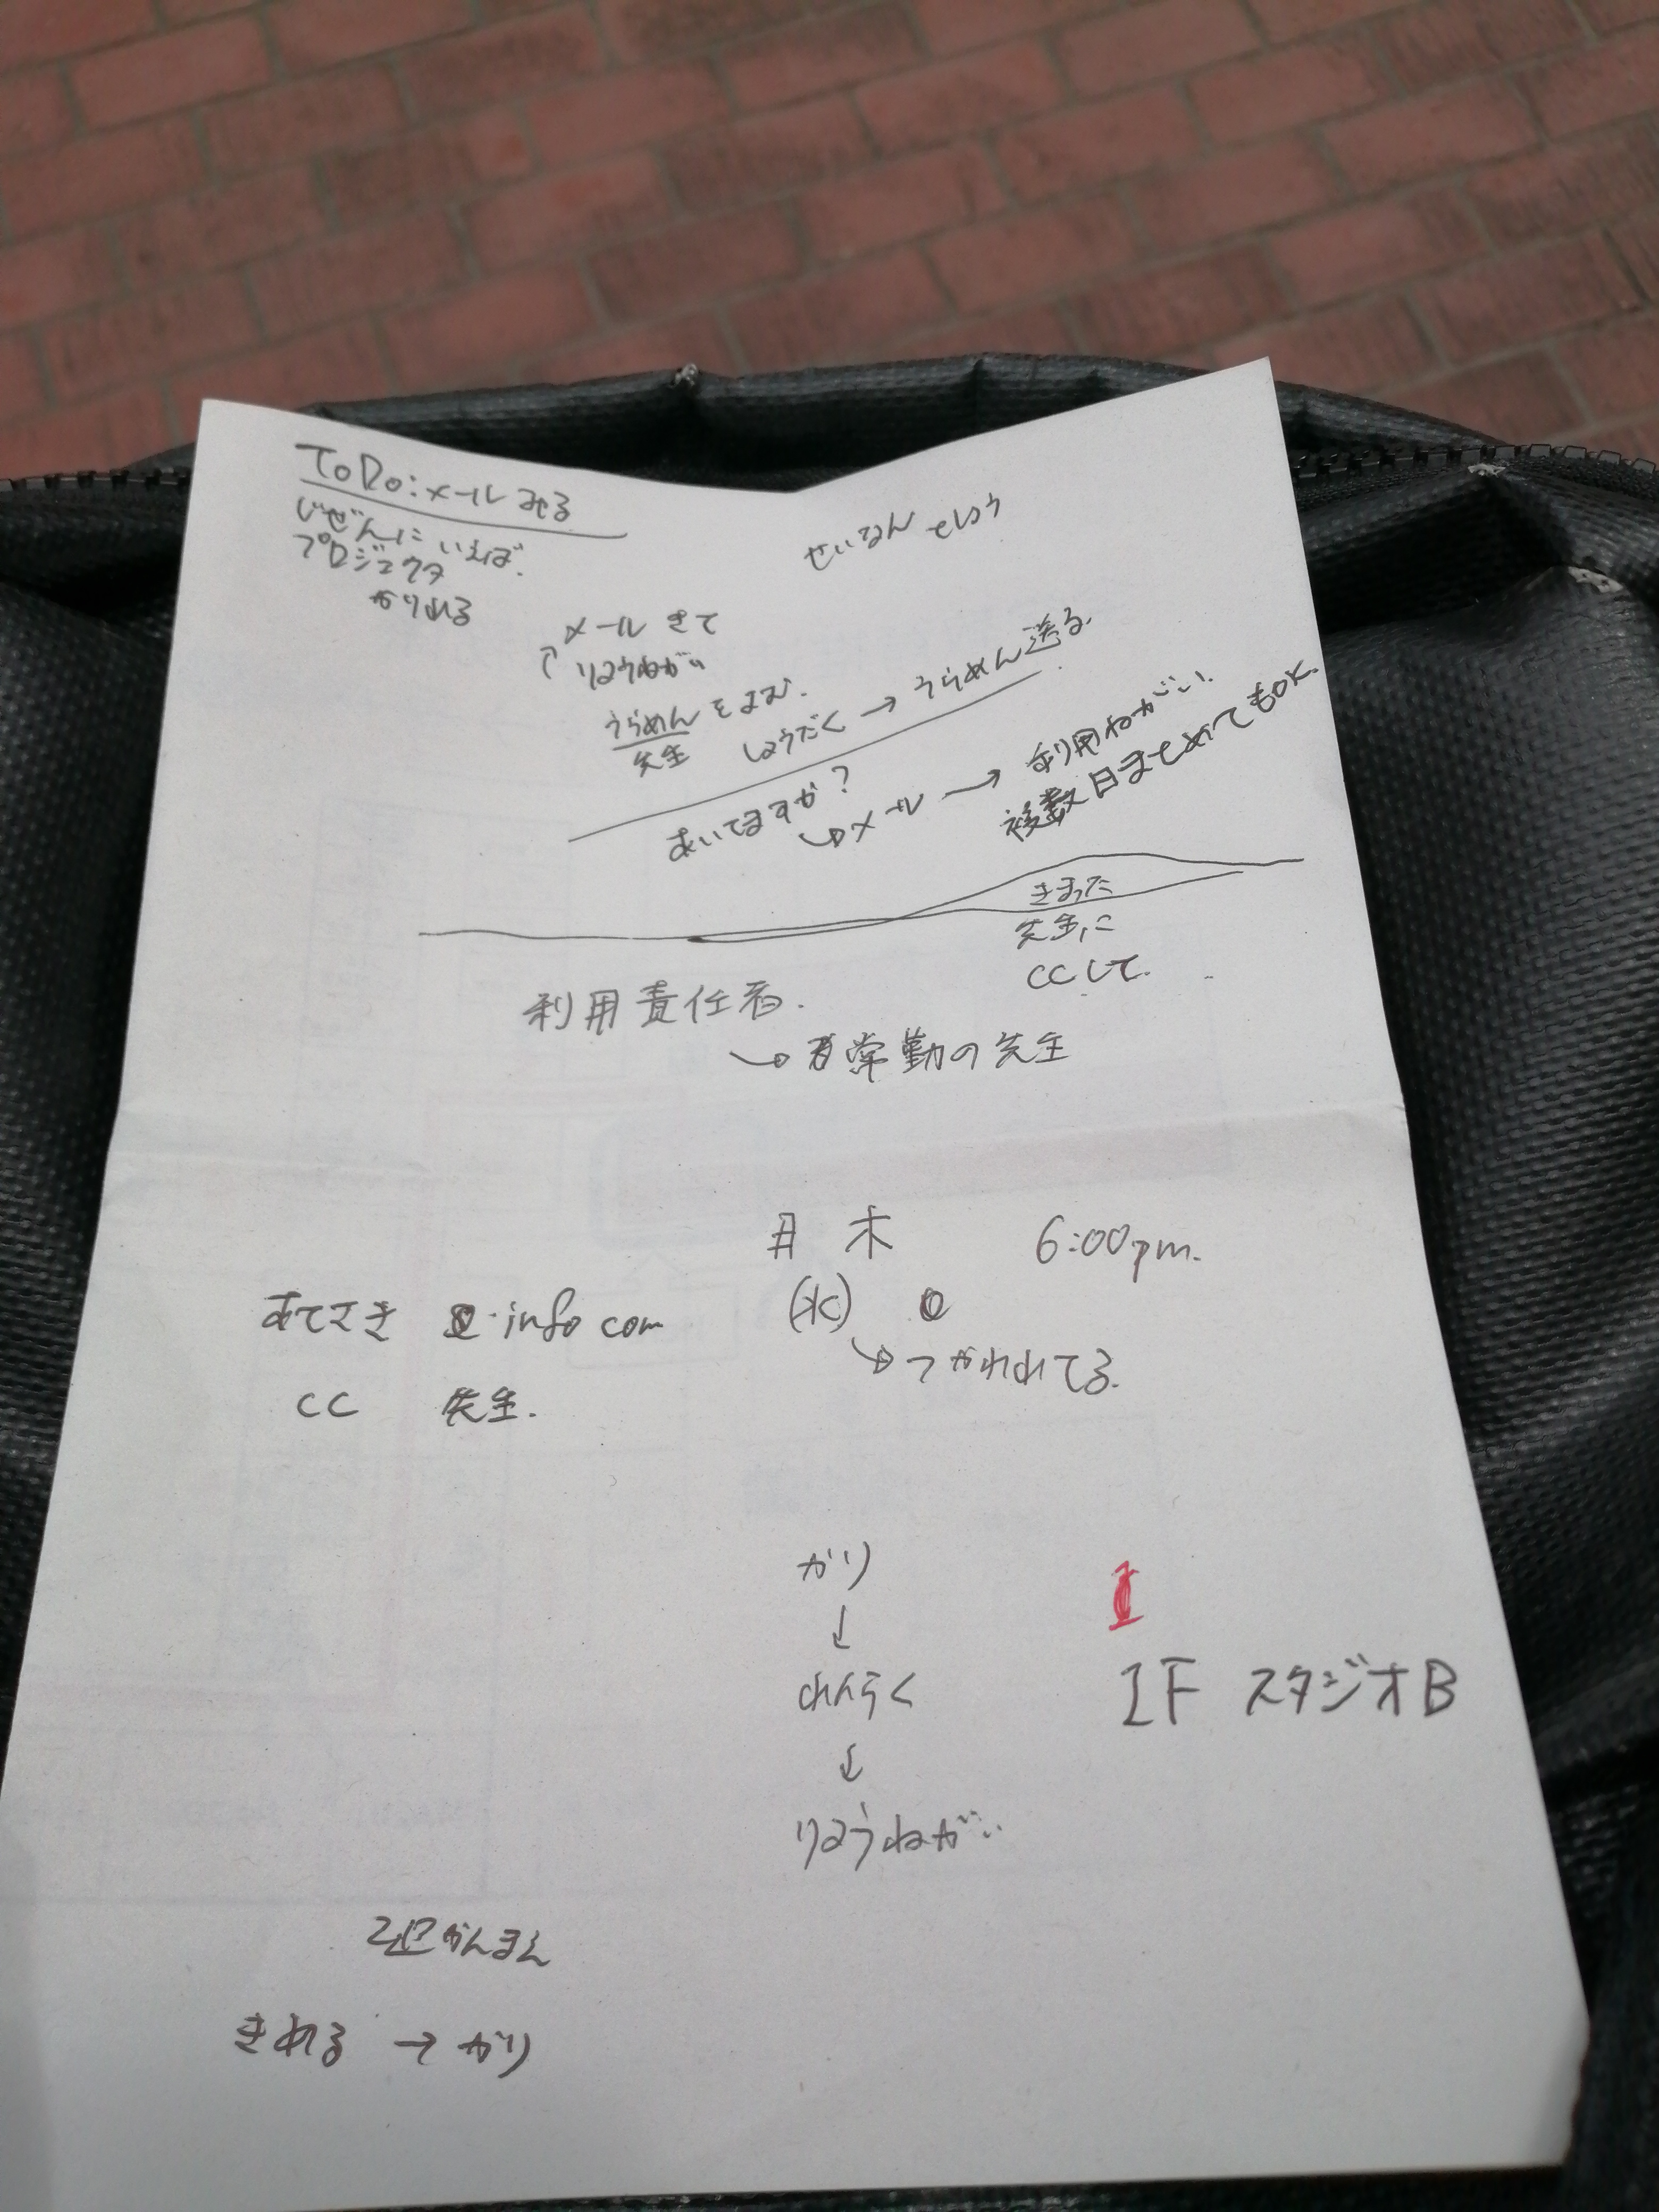 ToDo:メールみる
じぜんにいえば.
プロジェクタ
かりれる
せいなん
メール きて
↑ りようねがい
うらめんをよむ.
先生 しょうだく → うらめん送る
あいてますか?
↳メール → 利用ねがい.
複数日まとめてもOK.
きまった
先生に
CCして.
利用責任者.
↳常勤の先生
月 木 6:00pm.
(水)
↳つかわれてる.
あてさき info com
CC 先生.
かり
↓
れんらく
↓
りようねがい
1F スタジオB
2週かんまえ
きれる → かり